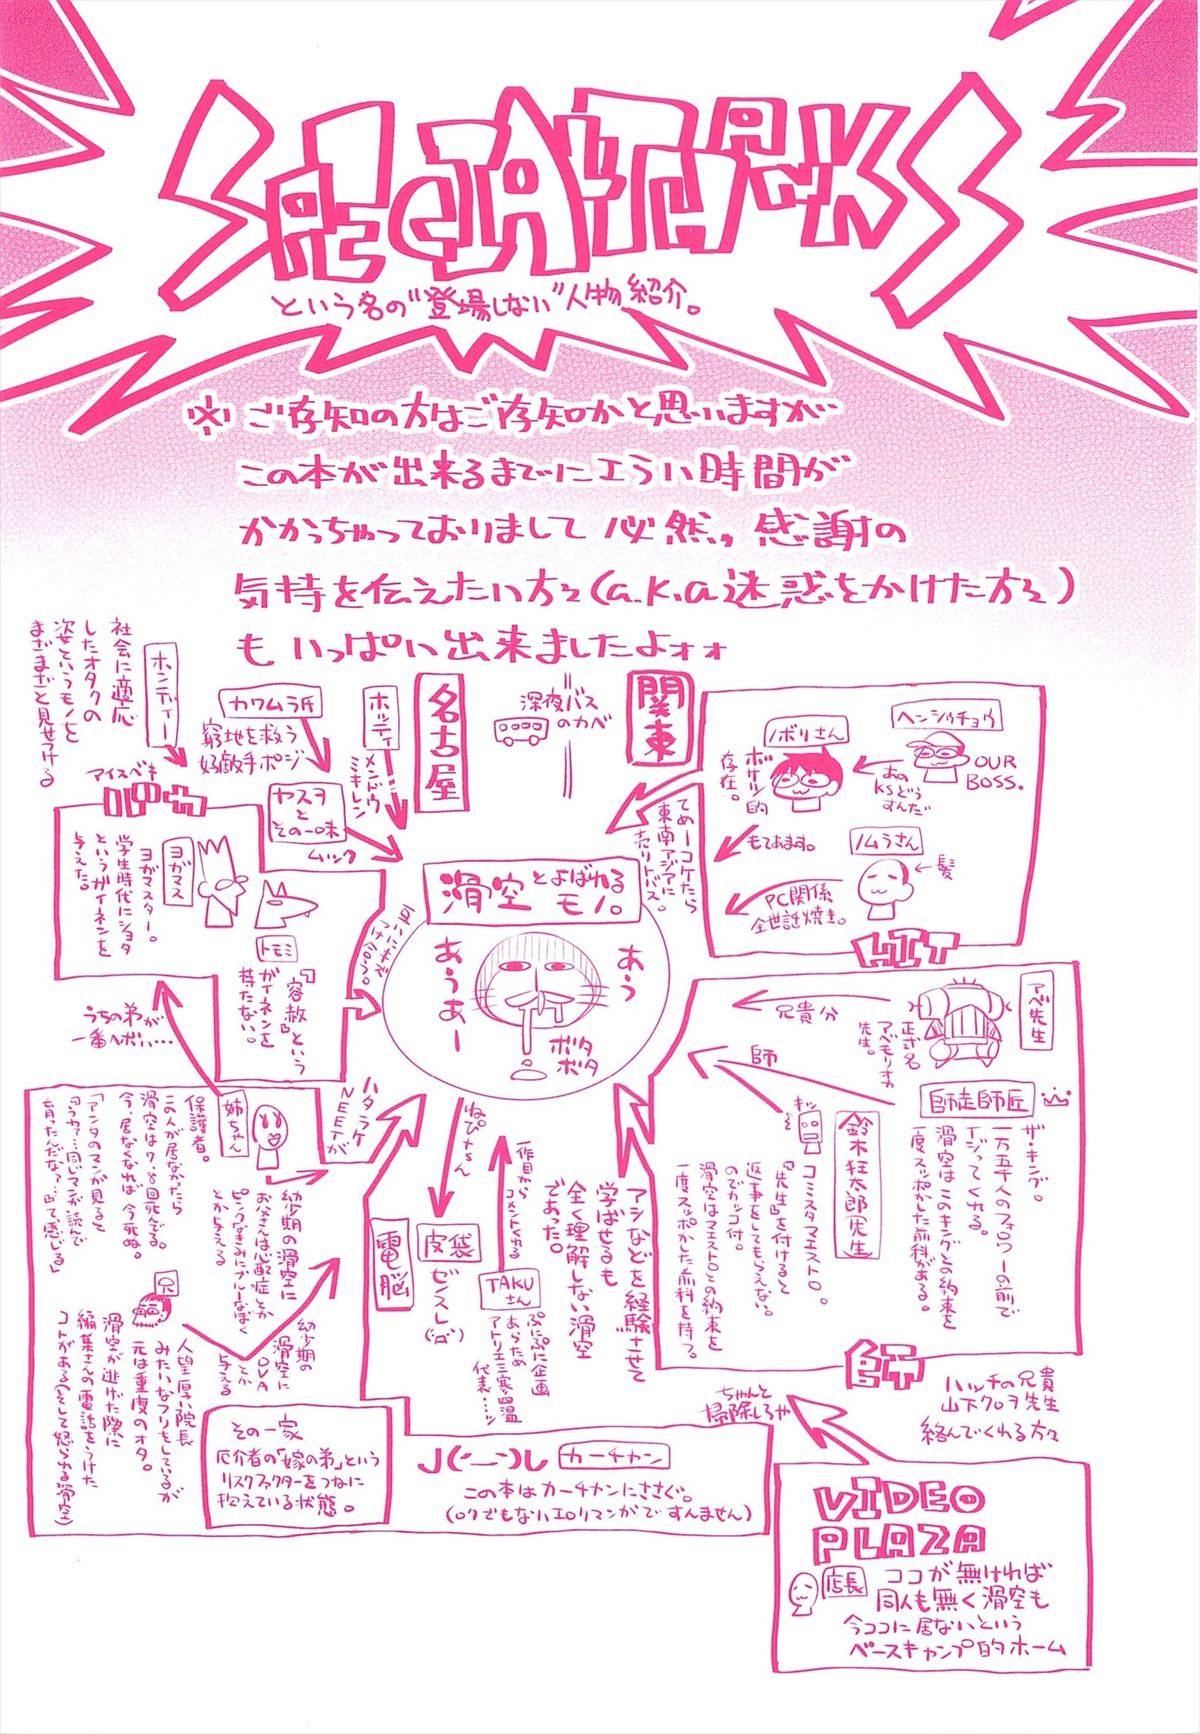 SPECIAL THANKS
という名の"登場しない"人物紹介。
※ご存知の方はご存知かと思いますが
この本が出来るまでにエラい時間が
かかっちゃっておりまして必然、感謝の
気持を伝えたい方々(a.k.a迷惑をかけた方々)
もいっぱい出来ましたよォォ
関東
深夜バス
のカベ
名古屋
ヘンシュウチョウ
OUR
BOSS.
あの
KSどう
すんだ
ノボリさん
ボサツ的
存在。
もてあます。
ノムラさん
髪
PC関係
全世話焼き。
HIT
てめーコケたら
東南アジアに
売りトバス。
ホッティ
メンドウ
ミキレン
カワムラ氏
窮地を救う
好敵手ポジ
ヤスヲ
と
その一味
ムック
ホンディー
社会に適応
したオタクの
姿というモノを
まざまざと見せつける
アイスベキ
ヨガマス
ヨガマスター。
学生時代にショタ
というガイネンを
与えた。
トモミ
『容赦』という
ガイネンを
持たない。
滑空とよばれる
モノ。
あう
あうあー
ボタ
ボタ
アベ先生
正式名
アベモリオカ
先生。
兄貴分
師
師走師匠
ザ・キング。
一万五千人のフォロワーの前で
イジってくれる。
滑空はこのキングとの約束を
一度スッポかした前科がある。
鈴木狂太郎先生
キッ
コミスタマエストロ。
『先生』を付けると
返事をしてもらえない。
のでカッコ付。
滑空はマエストロとの約束を
一度スッポかした前科を持つ。
師
ハッチの兄貴
山下クロヲ先生
絡んでくれる方々
アシなどを経験させて
学ばせるも
全く理解しない滑空
であった。
一作目から
コメントくれる
TAKU
さん
ぷにぷに企画
あらため
アトリエ三寒四温
代表…ッ
皮袋
ゼンスレ
電脳
うちの弟が
一番ヘボい…
ハタラケ
NEETが
姉ちゃん
保護者。
この人が居なかったら
滑空は7、8回死んでる。
今、居なくなれば今死ぬ。
「アンタのマンガ見ると
『うわァ…同じマンガ読んで
育ったんだなァ…』って感じる」
幼少期の滑空に
お父さんは心配症とか
ピンクなきみにブルーなぼく
とか与える
兄
人望厚い院長
みたいなフリをしているが
元は重度のオタ。
滑空が逃げた際に
編集さんの電話をうけた
コトがある(そして怒られる滑空)
幼少期の
滑空に
OVA
とか
与える
その一家
厄介者の「嫁の弟」という
リスクファクターをつねに
抱えている状態。
J('ー`)し
カーチャン
この本はカーチャンにささぐ。
(ロクでもないエロリマンガですんません)
ちゃんと
掃除しろや
VIDEO
PLAZA
店長
ココが無ければ
同人も無く滑空も
今ココに居ないという
ベースキャンプ的ホーム